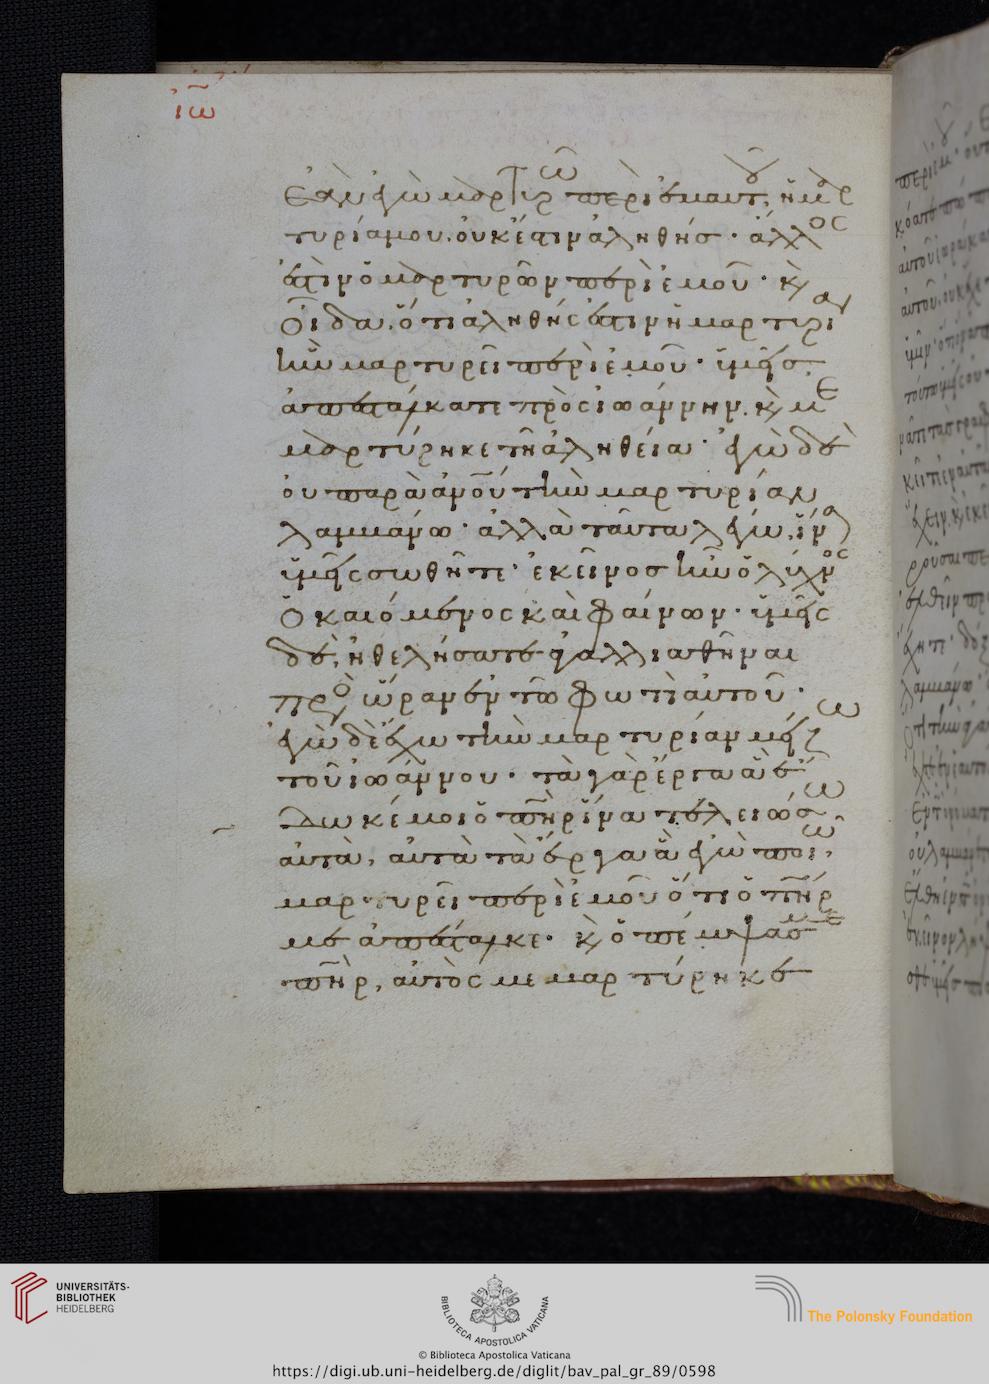 ἰῶ
Ἐὰν ἐγὼ μαρτυρῶ περὶ ἐμαυτοῦ, ἡ μαρ
τυρία μου, οὐκ ἔστιν ἀληθής· ἄλλος
ἐστὶν ὁ μαρτυρῶν περὶ ἐμοῦ· κ̀
οἶδα, ὅτι ἀληθής ἐστιν ἡ μαρτυρία
ἣν μαρτυρεῖ περὶ ἐμοῦ· ὑμεῖς
ἀπεστάλκατε πρὸς ἰωάννην, κ̀ με
μαρτύρηκε τῆ ἀληθεία· ἐγὼ δὲ
οὐ παρὰ ἀνου τὴν μαρτυρίαν
λαμμάνω· ἀλλὰ ταῦτα λέγω, ἵνα
ὑμεῖς σωθῆτε· ἐκεῖνος ἦν ὁ λύχνος
ὁ καιόμενος καὶ φαίνων· ὑμεῖς
δὲ, ἠθελήσατε ἀγαλλιαθῆναι
πρὸς ὥραν ἐν τῶ φωτὶ αὐτοῦ·
ἐγὼ δὲ ἔχω τὴν μαρτυρίαν μείζω
τοῦ ἰωάννου· τὰ γὰρ ἔργα ἃ ἔ
δωκέ μοι ὁ πῆρ ἵνα τελειώσω
αὐτὰ, αὐτὰ τὰ ἔργα ἃ ἐγὼ ποιῶ,
μαρτυρεῖ περὶ ἐμοῦ ὅτι ὁ πῆρ
με ἀπέσταλκε· κ̀ ὁ πέμψας με
πῆρ, αὐτὸς μεμαρτύρηκε
UNIVERSITÄTS-
BIBLIOTHEK
HEIDELBERG
BIBLIOTECA APOSTOLICA VATICANA
The Polonsky Foundation
© Biblioteca Apostolica Vaticana
https://digi.ub.uni-heidelberg.de/diglit/bav_pal_gr_89/0598